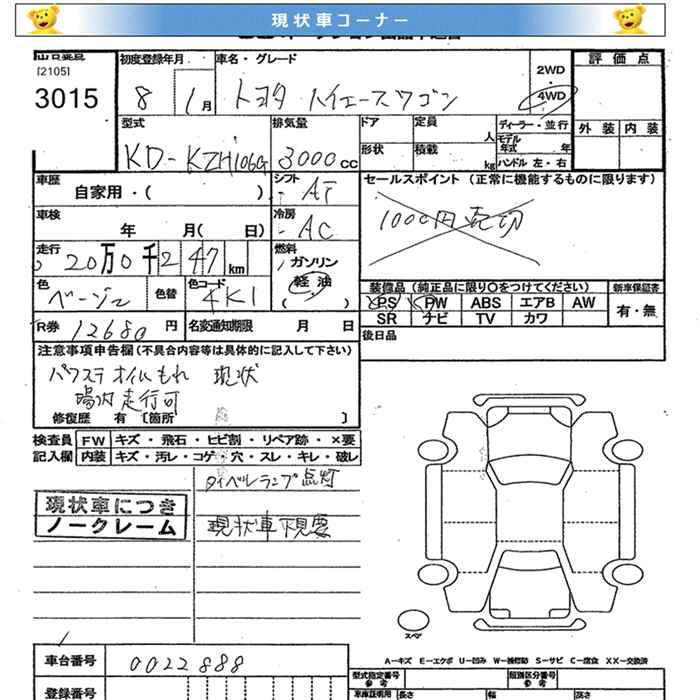 現状車コーナー
[2105]
3015
初度登録年月
8 1月
車名・グレード
トヨタ ハイエースワゴン
2WD
・
4WD
評価点
外装 内装
型式
KD-KZH106G
排気量
3000cc
ドア
形状
定員 人
積載 kg
ディーラー・並行
モデル年式 年
ハンドル 左・右
車歴
自家用・( )
シフト
AT
セールスポイント (正常に機能するものに限ります)
1000円売切
車検
年 月( 日)
冷房
AC
走行
20万0千247km
燃料
ガソリン
軽油
( )
色
ベージュ
色替
色コード
4K1
装備品(純正品に限り○をつけてください)
PS PW ABS エアB AW
SR ナビ TV カワ
新車保証書
有・無
R券 12680円
名変通知期限 月 日
後日品
注意事項申告欄(不具合内容等は具体的に記入して下さい)
パワステオイルもれ 現状
場内走行可
修復歴 有 〔箇所 〕
検査員
記入欄
FW キズ・飛石・ヒビ割・リペア跡・×要
内装 キズ・汚レ・コゲ・穴・スレ・キレ・破レ
タイベルランプ点灯
現状車につき
ノークレーム
現状車下見要
スペア
A-キズ E-エクボ U-凹み W-補修跡 S-サビ C-腐食 XX-交換済
車台番号
0022888
登録番号
型式指定番号
参考
類別区分番号
参考
車庫証明用 長さ 幅 高さ